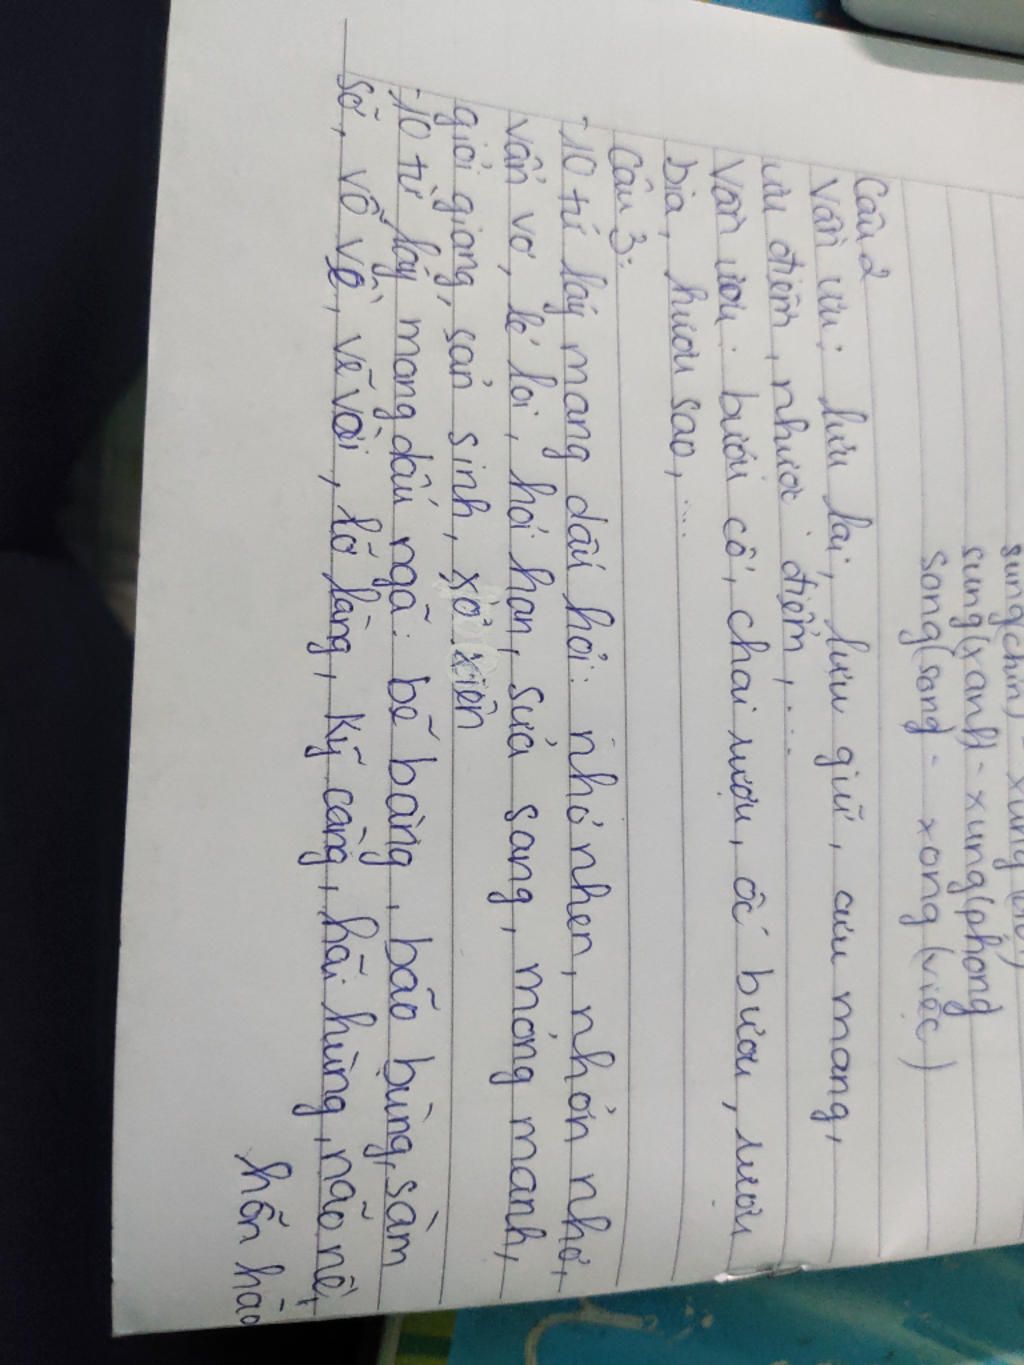 sung(chín) - xung
sung(xanh) - xung(phong
song(sang - xong (việc)
Câu 2
Vần ưu: lưu lại, lưu giữ, cưu mang,
ưu điểm, nhược điểm,...
Vần ươu: bướu cổ, chai rượu, ốc bươu, rượu
bia, hươu sao,...
Câu 3:
-10 từ láy mang dấu hỏi: nhỏ nhen, nhỏn nhỏ,
vẩn vơ, lẻ loi, hỏi han, sửa sang, mỏng manh,
giỏi giang, sản sinh, xỏ xiên
-10 từ láy mang dấu ngã: bẽ bàng, bão bùng, sàm
sỡ, vỗ về, vẽ vời, lỡ làng, kỹ càng, hãi hùng, não nề,
hỗn hào